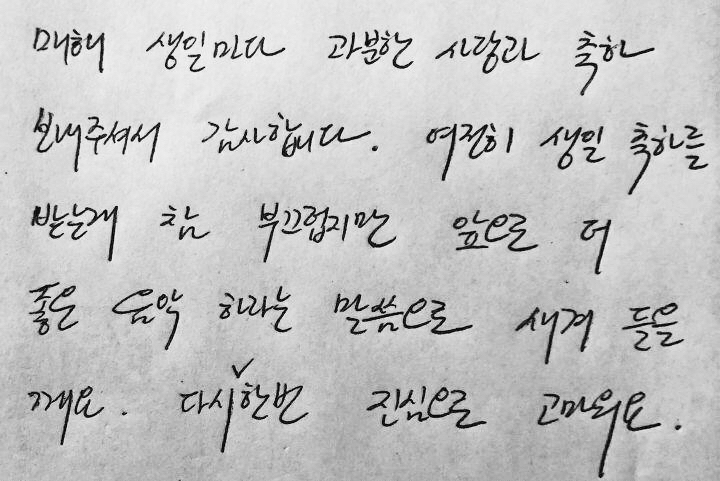 매해 생일마다 과분한 사랑과 축하
보내주셔서 감사합니다. 여전히 생일 축하를
받는게 참 부끄럽지만 앞으로 더
좋은 음악 하라는 말씀으로 새겨 들을
께요. 다시✓한번 진심으로 고마워요.